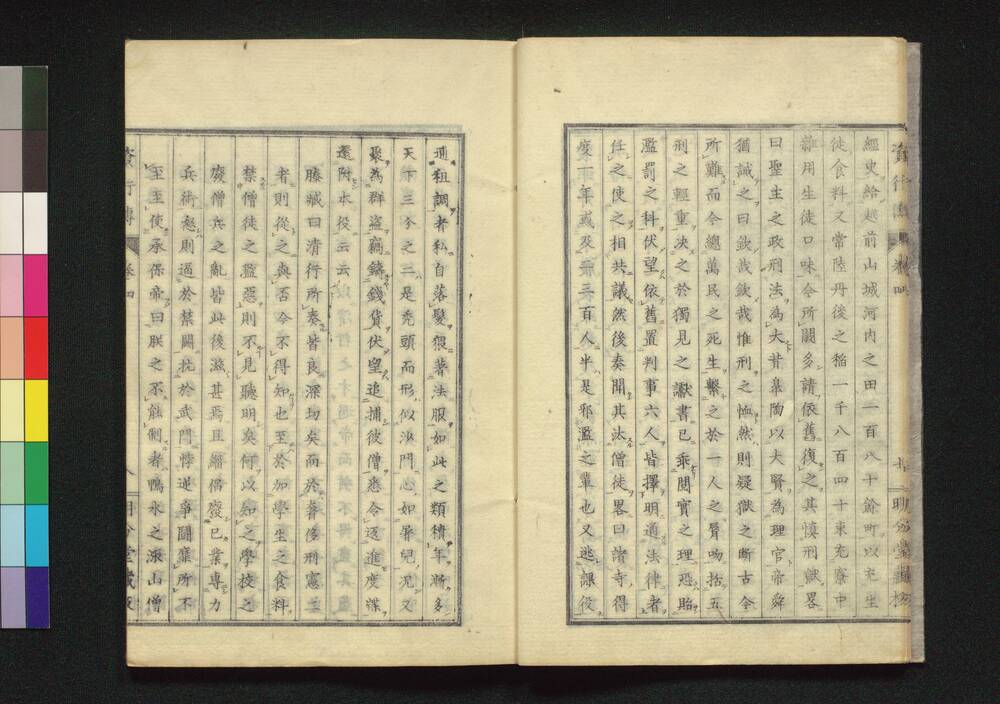 經史給越前山城河內之田一百八十餘町以充生
徒食料又常陸丹後之稲一千八百四十束充寮中
雜用生徒口味今所闕多請依舊復之其慎刑獄畧
曰聖主之政刑法為大昔皐陶以大賢為理官帝舜
猶誡之曰欽哉欽哉惟刑之恤然則疑獄之断古今
所難而令總萬民之死生繫之於一人之脣吻括五
刑之輕重决之於獨見之讞書已乖閲實之理恐貽
濫罰之科伏望依舊置判事六人皆擇明通法律者
任之使之相共議然後奏聞其汰僧徒畧曰諸寺得
度者年或及三百人半是邪濫之輩也又逃課役
逋租調者私自落髮猥著法服如此之類積年漸多
天下三分之二是禿頭而形似沙門心如屠兒况又
聚為群盗竊鑄錢貨伏望追捕彼僧悉令返進度牒
還附本役云云
勝臧曰清行所奏皆良深切矣而於奢侈刑憲二
者則從之與否今不得知也至於加學生之食料
禁僧徒之濫惡則不見聽明矣何以知之學校之
廢僧兵之亂皆此後滋甚焉且緇侶廢已業專力
兵術愁則過於禁闕抗於武門悖逆爭鬪靡所不
至至使承保帝曰朕之不能制者鴨水之涿山僧